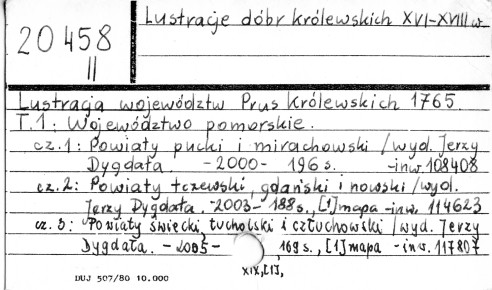 20458
II
Lustracje dóbr królewskich XVI-XVIII w.
Lustracja województw Prus Królewskich 1765.
T.1: Województwo pomorskie.
cz.1: Powiaty pucki i mirachowski / wyd. Jerzy
Dygdała. -2000- 196 s. - inw. 108408
cz.2: Powiaty tczewski, gdański i nowski / wyd.
Jerzy Dygdała. -2003- 188 s., [1] mapa - inw. 114623
cz. 3: Powiaty świecki, tucholski i człuchowski / wyd. Jerzy
Dygdała. - 2005 - 169 s., [1] mapa - inw. 117807
XIX, [1],
DUJ 507/80 10.000